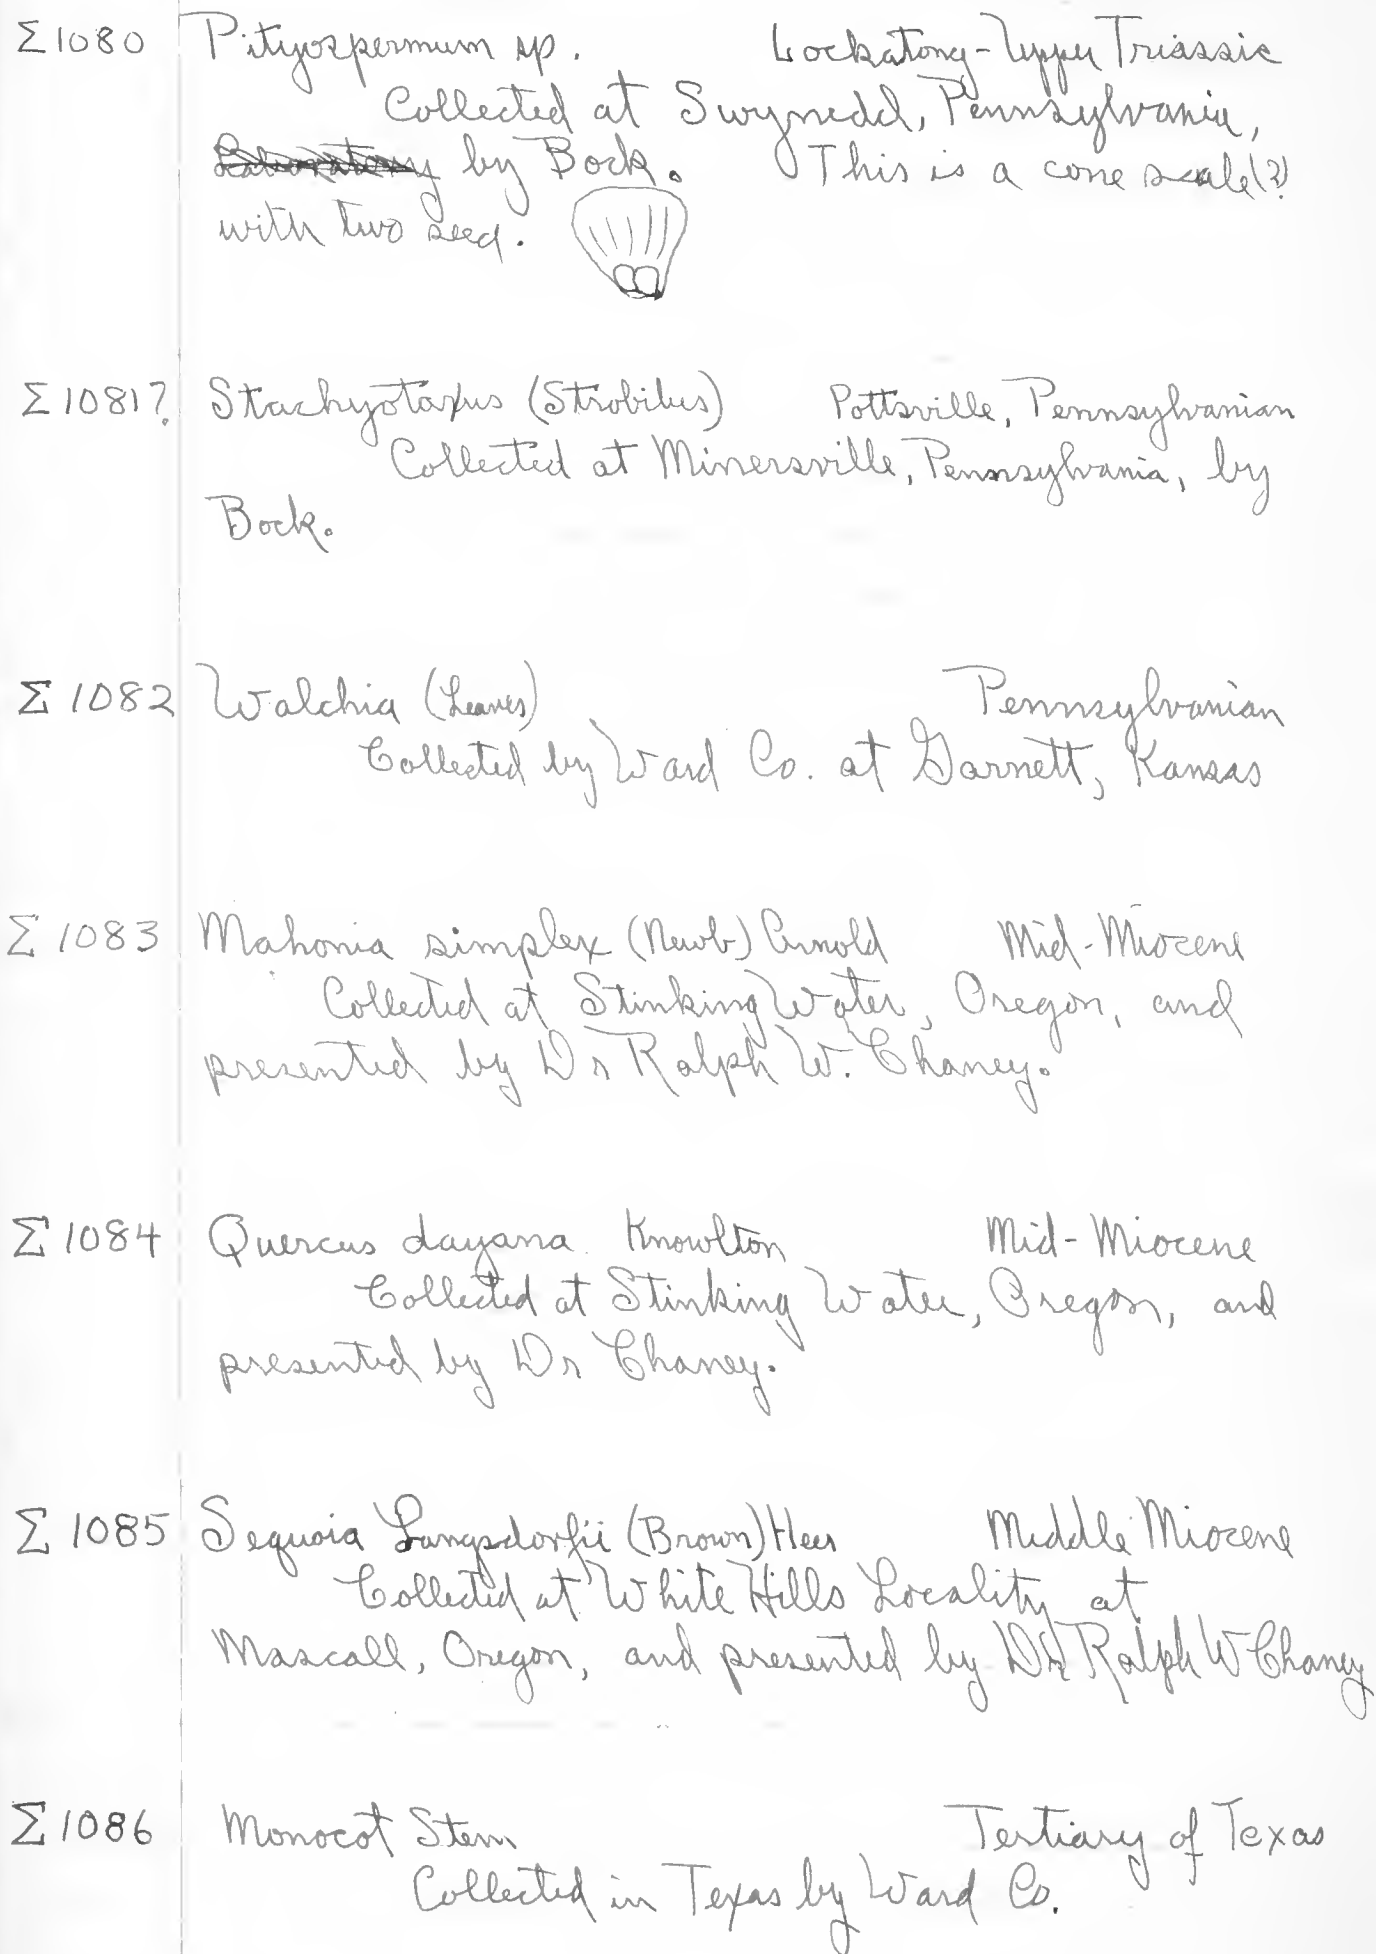 Σ1080 Pityospermum sp. Lockatong-Upper Triassic
Collected at Gwynedd, Pennsylvania,
by Bock. This is a cone scale(?)
with two seed.
Σ1081? Stachyotaxus (Strobilus) Pottsville, Pennsylvanian
Collected at Minersville, Pennsylvania, by
Bock.
Σ 1082 Walchia (Leaves) Pennsylvanian
Collected by Ward Co. at Garnett, Kansas
Σ 1083 Mahonia simplex (Newb) Arnold Mid-Miocene
Collected at Stinking Water, Oregon, and
presented by Dr Ralph W. Chaney.
Σ 1084 Quercus dayana Knowlton Mid-Miocene
Collected at Stinking Water, Oregon, and
presented by Dr Chaney.
Σ 1085 Sequoia Langsdorfii (Brown) Heer Middle Miocene
Collected at White Hills Locality at
Mascall, Oregon, and presented by Dr Ralph W Chaney
Σ1086 Monocot Stem Tertiary of Texas
Collected in Texas by Ward Co.